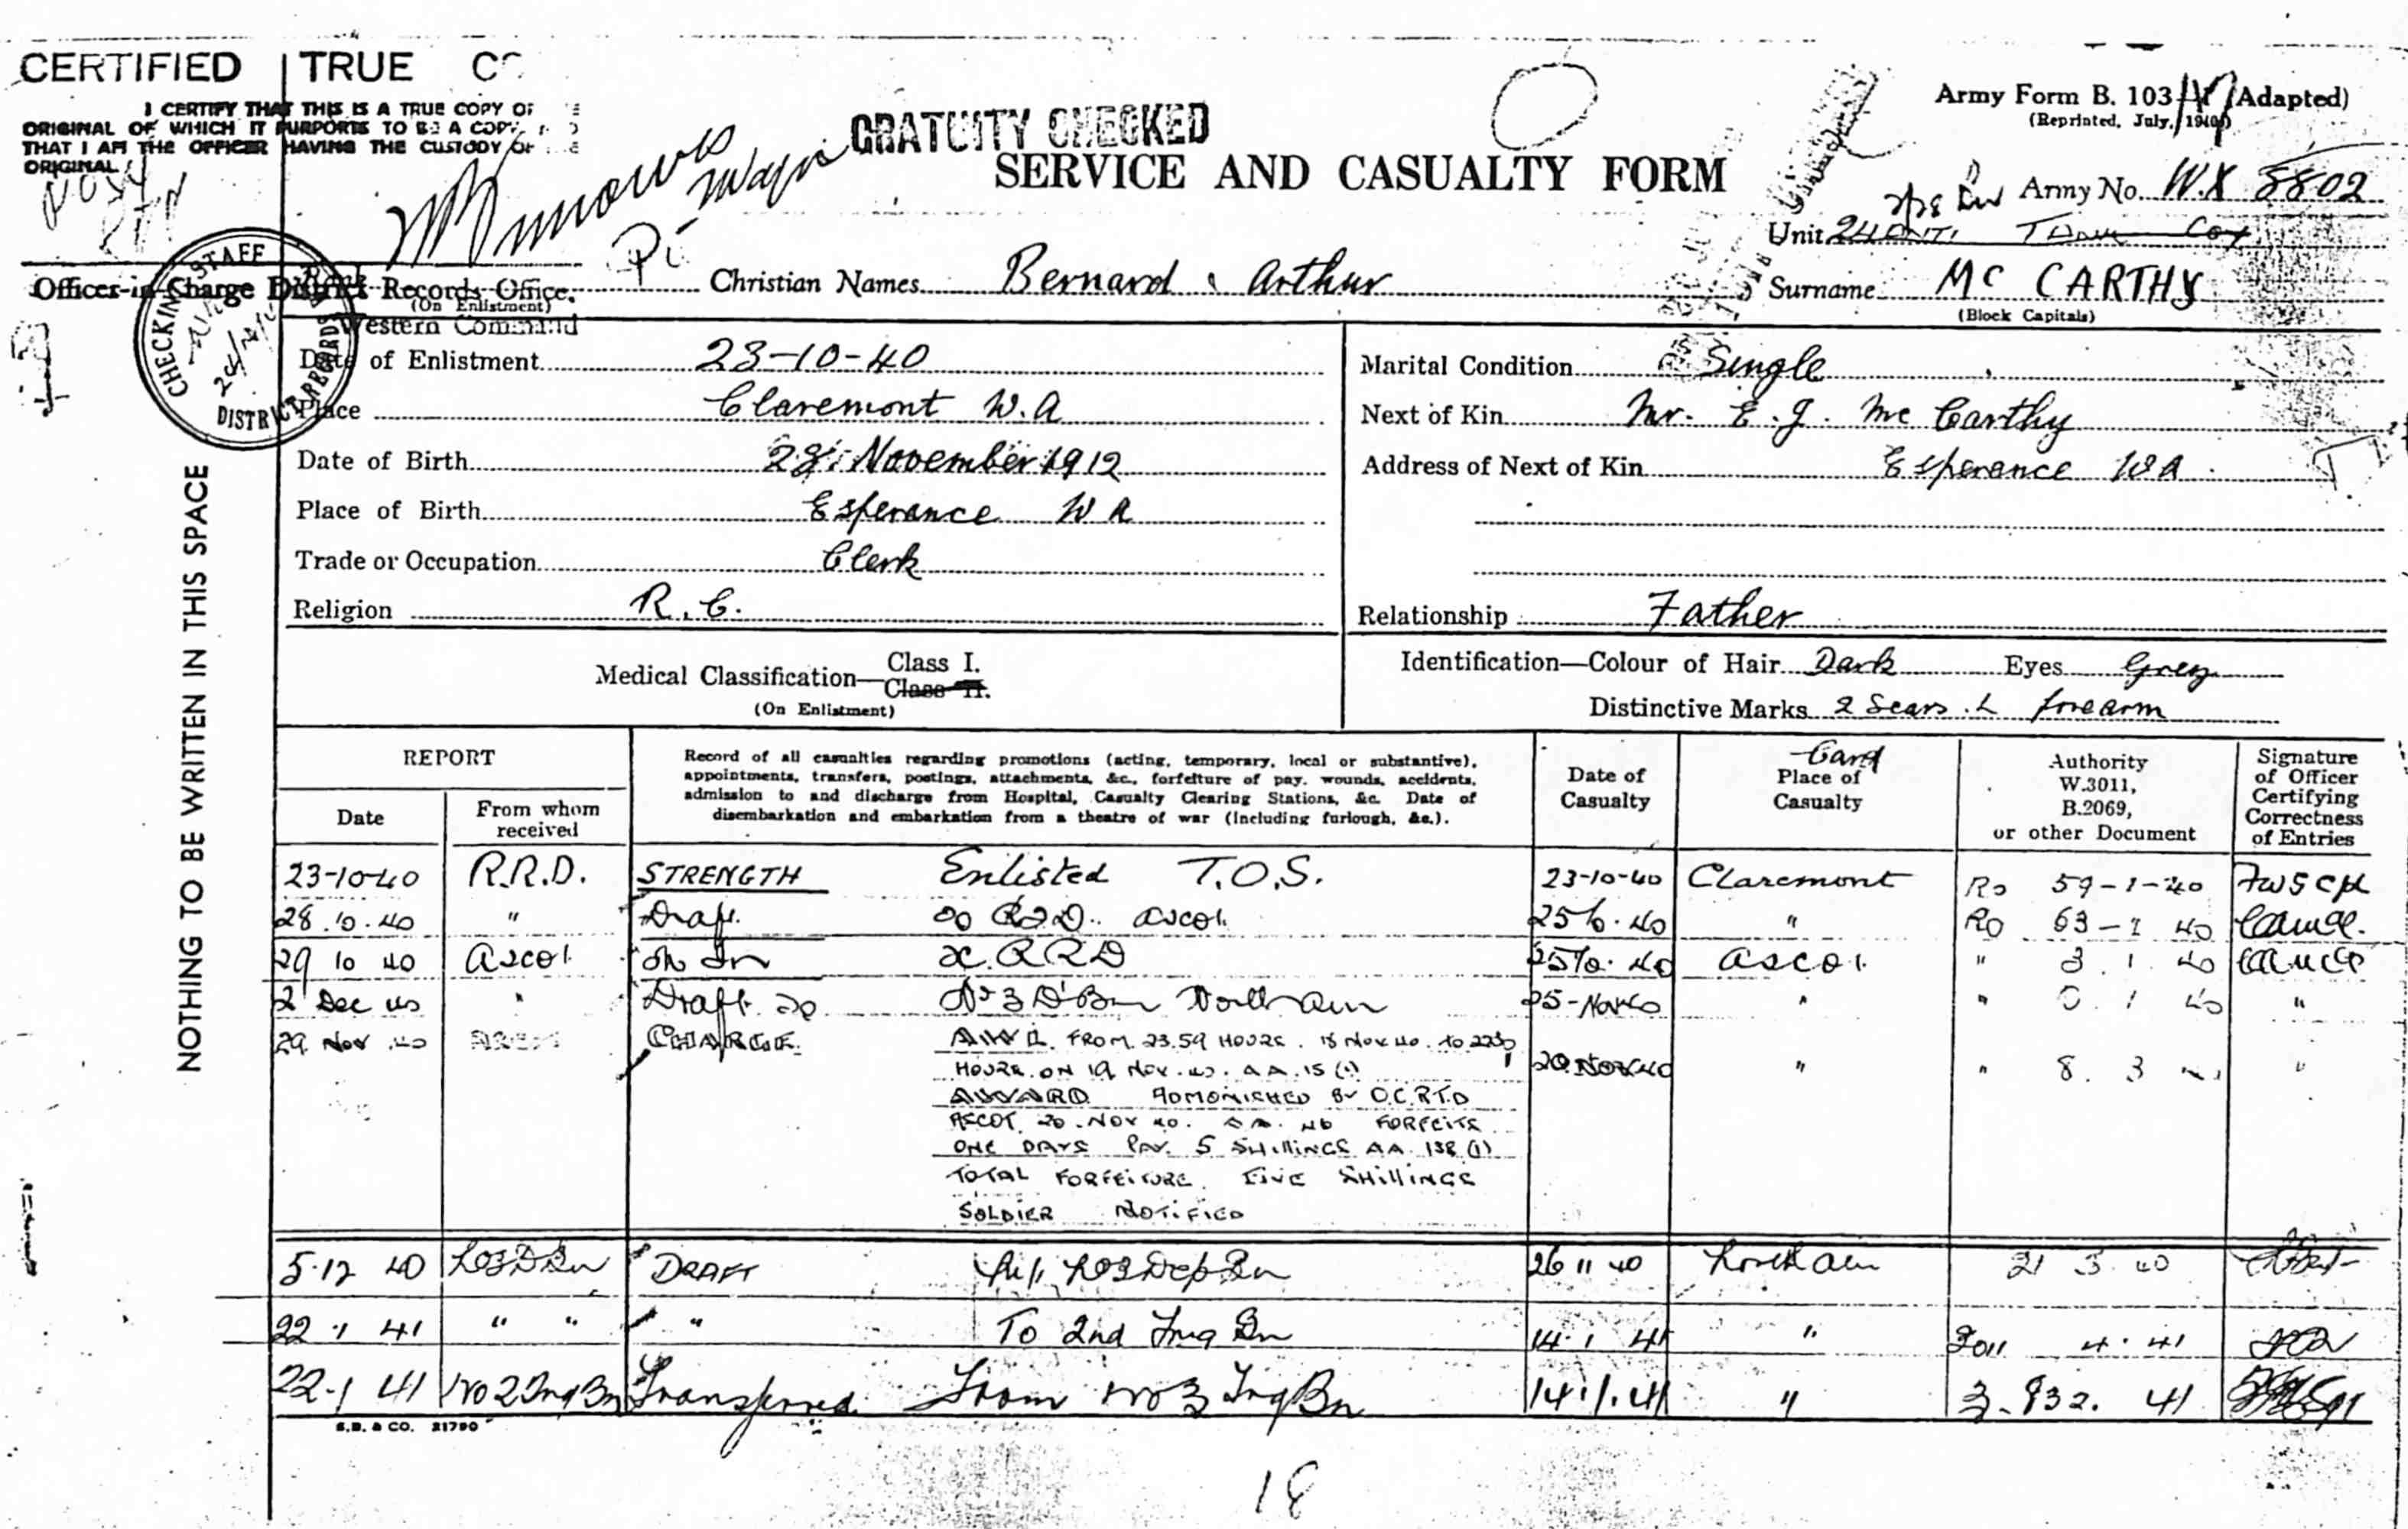 CERTIFIED TRUE
I CERTIFY THAT THIS IS A TRUE COPY OF
ORIGINAL OF WHICH IT PURPORTS TO BE A COPY
THAT I AM THE OFFICER HAVING THE CUSTODY OF
ORIGINAL
GRATUITY CHECKED
Army Form B. 103 (Adapted)
(Reprinted, July, 1940)
SERVICE AND CASUALTY FORM
Major
Army No. W.X 8802
Unit 24 Anti Tank Coy
Officer-in-Charge District Records Office.
Western Command
CHECKING STAFF
DISTRICT RECORDS
(On Enlistment)
Christian Names Bernard Arthur
Surname Mc CARTHY
(Block Capitals)
Date of Enlistment 23-10-40
Place Claremont W.A
Date of Birth 28 November 1912
Place of Birth Esperance W A
Trade or Occupation Clerk
Religion R.C.
Marital Condition Single
Next of Kin Mr. E. J. Mc Carthy
Address of Next of Kin Esperance W A
Relationship Father
Medical Classification—Class I.
Class II.
(On Enlistment)
Identification—Colour of Hair Dark Eyes Grey
Distinctive Marks 2 Scars L forearm
NOTHING TO BE WRITTEN IN THIS SPACE
REPORT
Date
From whom received
Record of all casualties regarding promotions (acting, temporary, local or substantive),
appointments, transfers, postings, attachments, &c., forfeiture of pay, wounds, accidents,
admission to and discharge from Hospital, Casualty Clearing Stations, &c. Date of
disembarkation and embarkation from a theatre of war (including furlough, &c.).
Date of Casualty
Card
Place of Casualty
Authority W.3011, B.2069, or other Document
Signature of Officer Certifying Correctness of Entries
23-10-40 R.R.D. STRENGTH Enlisted T.O.S. 23-10-40 Claremont Ro 59-1-40
28.10.40 " Draft Ascot 40 " RO 63-1 40
29 10 40 Ascot R R D 40 Ascot " 3.1.40
2 Dec 40 " Draft to Northam 25-Nov 40 " " 1 40 "
29 Nov 40 CHARGE A.W.L. FROM 23.59 HOURS 18 NOV 40 TO 2230
HOURS ON 19 NOV. 40. A.A. 15 (1) 20 Nov 40 " " 8. 3 "
AWARD ADMONISHED BY O.C.R.T.D
ASCOT 20 NOV 40. A.A. 46 FORFEITS
ONE DAYS PAY. 5 SHILLINGS AA. 138 (1)
TOTAL FORFEITURE FIVE SHILLINGS
SOLDIER NOTIFIED
5.12 40 DRAFT Dep Bn 26 11 40 Northam 21 3 40
22.1 41 " " " To 2nd Trng Bn 14.1 41 " 4.41
22-1 41 No 2 Trng Bn Transferred From No 3 Trng Bn 14.1.41 " 3.832. 41
S.B. & CO. 21790
18